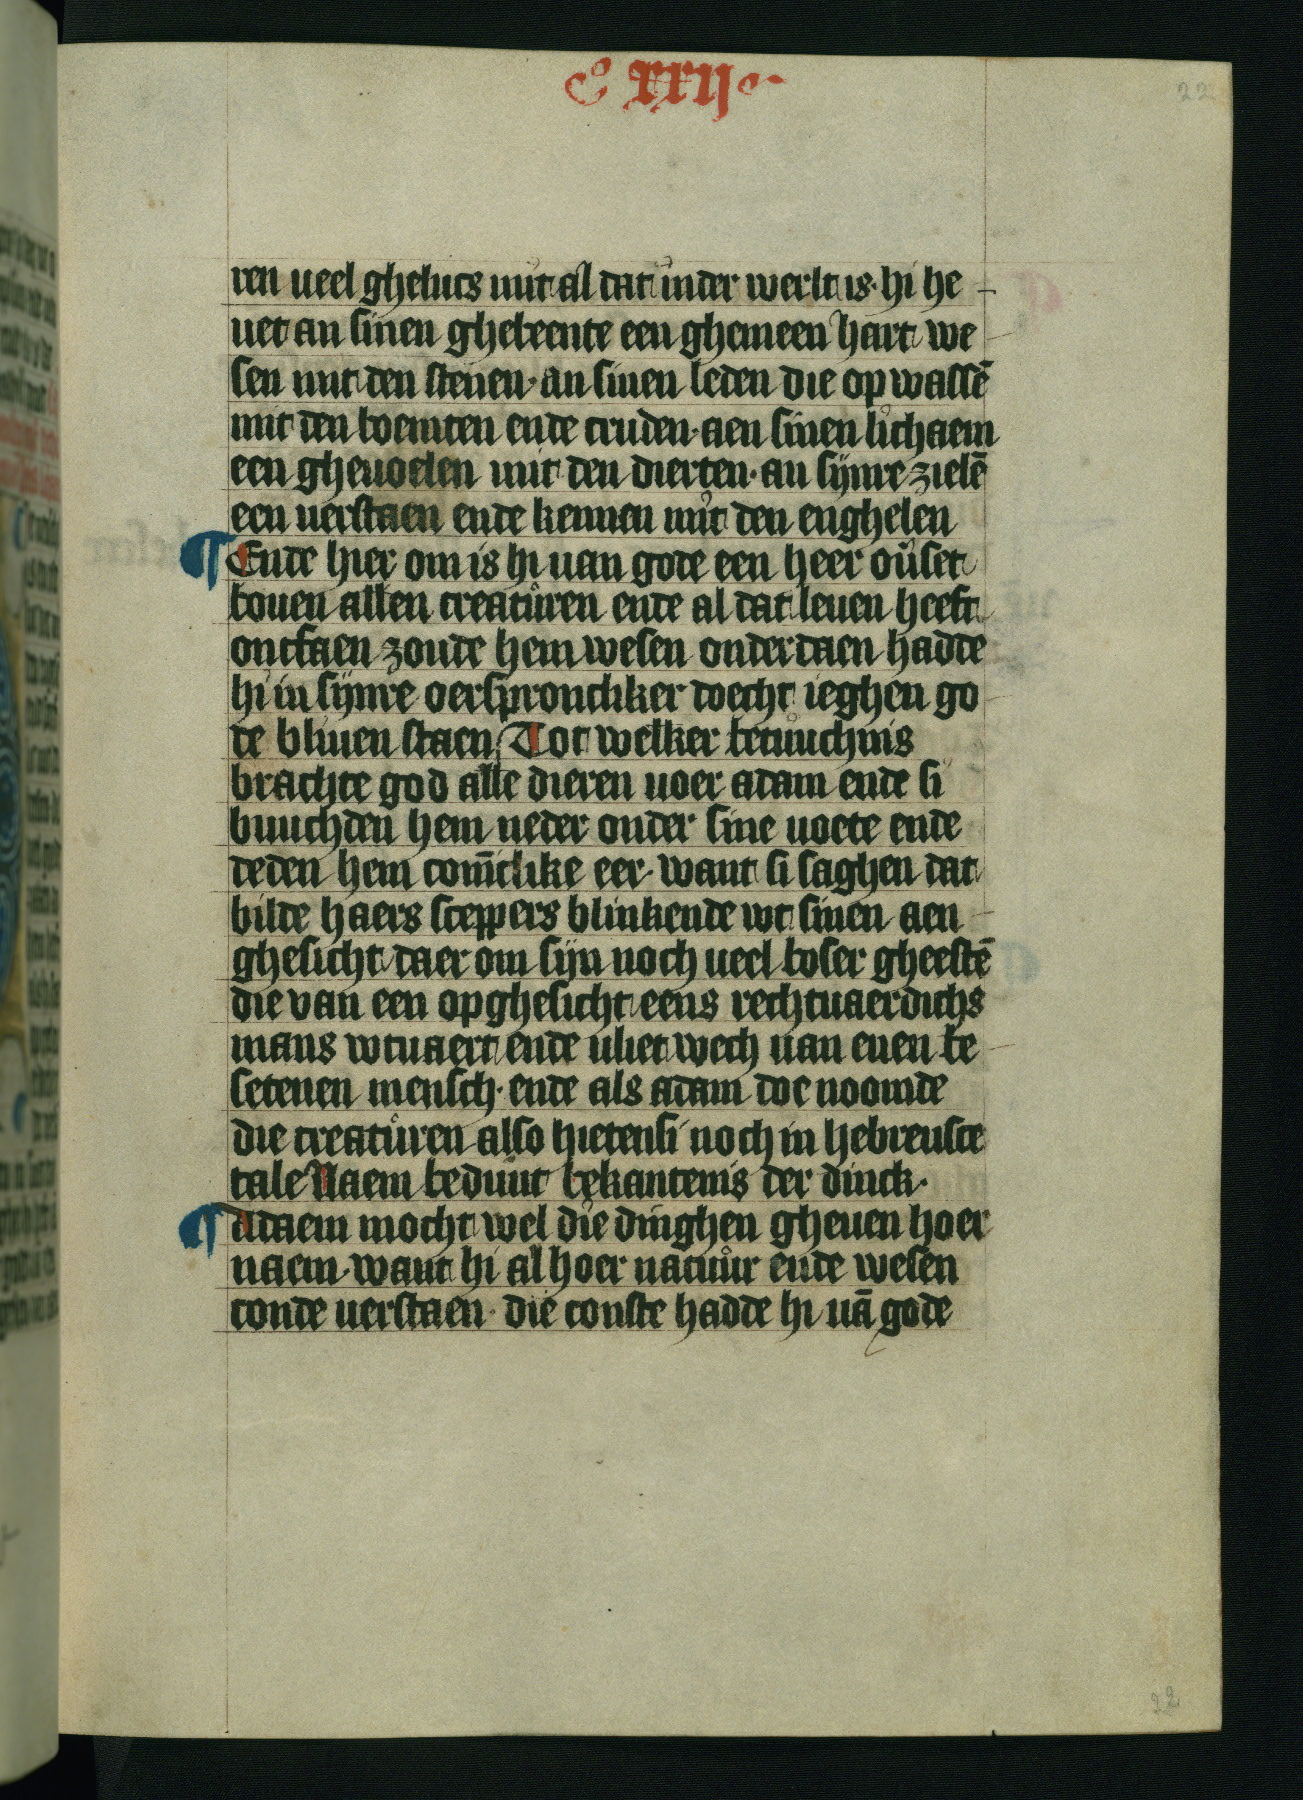 xxij
22
ren ueel gheluts mit al dat inder werlt is· hi he
uet an sinen ghebeente een ghemeen hart we
sen mit den stenen· an sinen leden die op wassē
mit den boemten ende cruden· aen sinen lichaem
een gheuoelen mit den dierten· an sijnre zielē
een uerstaen ende kennen mit den enghelen
¶ Ende hier om is hi uan gode een heer ou̅set
bouen allen creaturen ende al dat leuen heeft
ontfaen zoude hem wesen onderdaen hadde
hi in sijnre oerspronckiker doecht ieghen go
de bliuen staen Tot welker betuuchnis
brachte god alle dieren uoer adam ende si
buuchden hem neder onder sine uoete ende
deden hem conīclike eer· want si saghen dat
bilde haers sceppers blinkende wt sinen aen
ghesicht daer om sijn noch ueel boser gheestē
die van een opghesicht eens rechtuaerdichs
mans wtuaert ende uliet wech uan euen be
setenen mensch· ende als adam doe noomde
die creaturen also hieten si noch in hebreusce
tale Naem beduut bekantenis der dinck·
¶ Adaem mocht wel die dinghen gheuen hoer
naem· want hi al hoer natuur ende wesen
conde uerstaen· die conste hadde hi uā gode
22